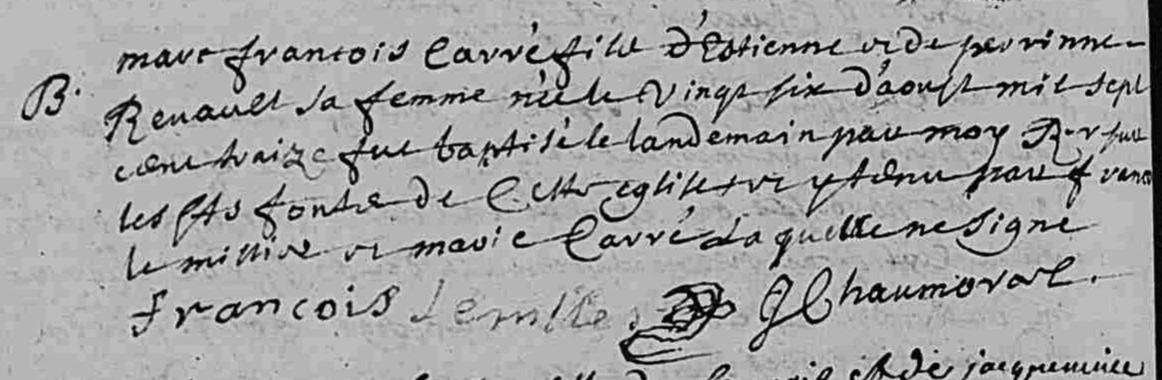 B. marc francois Carré fils d'Estienne et de perrinne
Renault sa femme née le vingt six d'aoust mil sept
cent traize fut baptisé le landemain par moy Rr sur
les sts fonts de cette eglise et y tenu par franc
le millier et marie Carré Laquelle ne signe
francois Lemilles JChaumorat.
de jacquemine